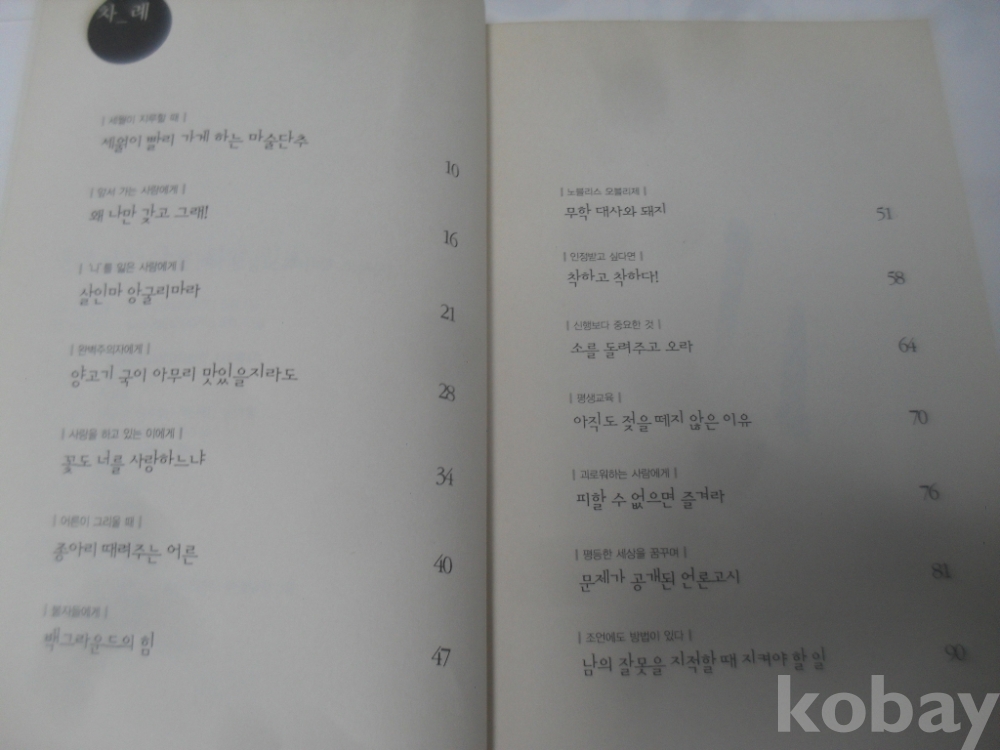 차_례
| 세월이 지루할 때 |
세월이 빨리 가게 하는 마술단추
10
| 앞서 가는 사람에게 |
왜 나만 갖고 그래!
16
| '나'를 잃은 사람에게 |
살인마 앙굴리마라
21
| 완벽주의자에게 |
양고기 국이 아무리 맛있을지라도
28
| 사랑을 하고 있는 이에게 |
꽃도 너를 사랑하느냐
34
| 어른이 그리울 때 |
종아리 때려주는 어른
40
백그라운드의 힘
47
| 노블리스 오블리제 |
무학 대사와 돼지
51
| 인정받고 싶다면 |
착하고 착하다!
58
| 신행보다 중요한 것 |
소를 돌려주고 오라
64
| 평생교육 |
아직도 젖을 떼지 않은 이유
70
| 괴로워하는 사람에게 |
피할 수 없으면 즐겨라
76
| 평등한 세상을 꿈꾸며 |
문제가 공개된 언론고시
81
| 조언에도 방법이 있다 |
남의 잘못을 지적할 때 지켜야 할 일
90
kobay